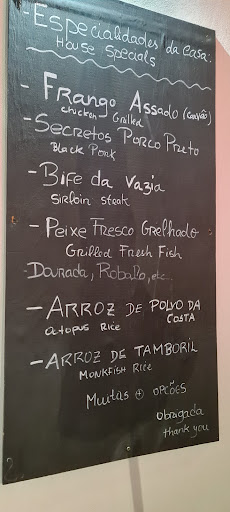 -Especialidades da Casa-
House Specials
- Frango Assado (Carvão)
chicken Grilled
-Secretos Porco Preto
Black Pork
-Bife da Vazia
Sirloin steak
-Peixe Fresco Grelhado
Grilled Fresh Fish
-Dourada, Robalo, etc...
-ARROZ DE POLVO DA COSTA
octopus Rice
-ARROZ DE TAMBORIL
MONKFISH RICE
Muitas + OPÇÕES
obrigada
thank you